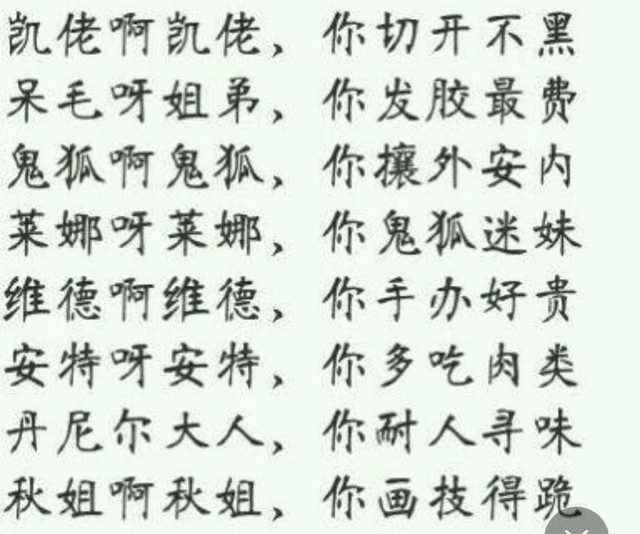 凯佬啊凯佬，你切开不黑
呆毛呀姐弟，你发胶最费
鬼狐啊鬼狐，你攘外安内
莱娜呀莱娜，你鬼狐迷妹
维德啊维德，你手办好贵
安特呀安特，你多吃肉类
丹尼尔大人，你耐人寻味
秋姐啊秋姐，你画技得跪